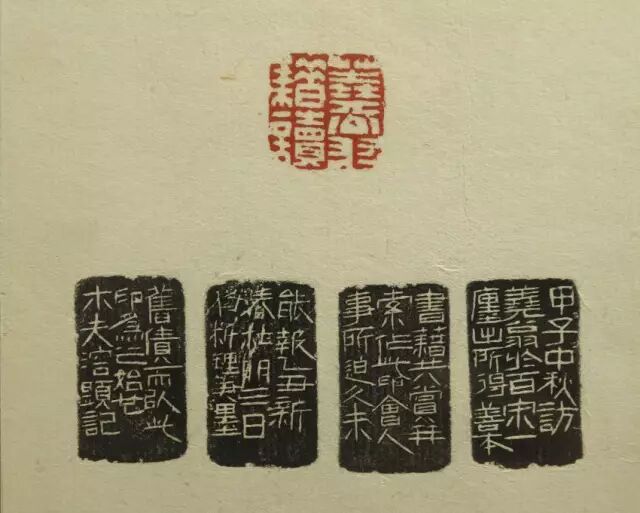 甲子中秋訪
蕘翁於百宋一
廛出所得善本
書籍共賞并
索作此印會人
事所迫久未
能報乙丑新
春杜門三日
將料理筆墨
舊債而以此
印為之始
木夫溶題記